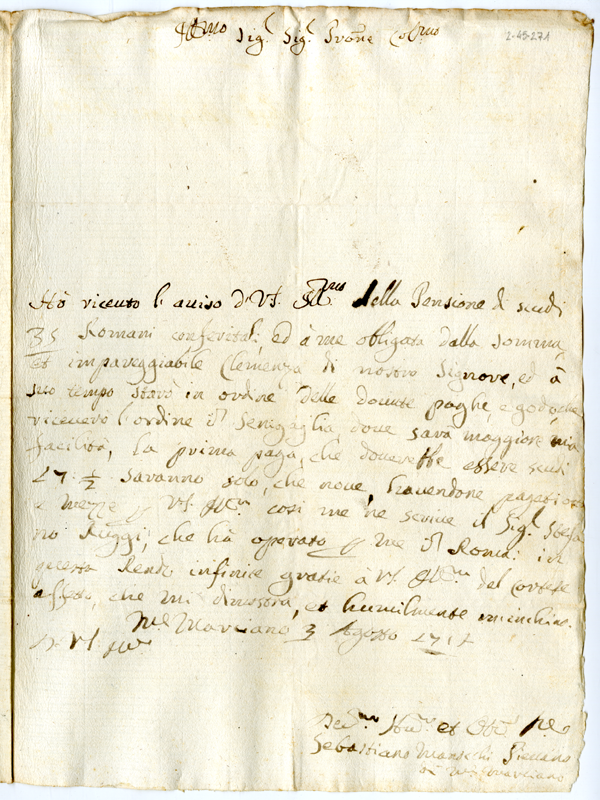 Ill.mo Sig.r Sig.r Prone Col.mo
2-49-271
Hò riceuto l'auiso di VS. Ill.ma della Pensione di scudi
35 Romani conferitali, ed à me obligata dalla somma,
et impareggiabile Clemenza di nostro Signore, ed à
suo tempo starò in ordine delle douute paghe, e godo, che
riceverò l'ordine p Senigaglia, doue sarà maggiore mia
facilità, la prima paga, che douerebbe essere scudi
17 1/2 saranno solo, che noue, hauendone pagati otto
e mezze p VS. Ill.ma così me ne scriue il Sig.r Stefa
no Ruggi, che hà operato p me in Roma: in
questa Rendo infinite gratie à VS. Ill.ma del cortese
affetto, che mi dimostra, et humilmente m'inchino.
M.te Marciano 3 Agosto 1714
Di VS. Ill.ma
Dev.mo et Obl.mo
Sebastiano Pievano
di M.te Marciano